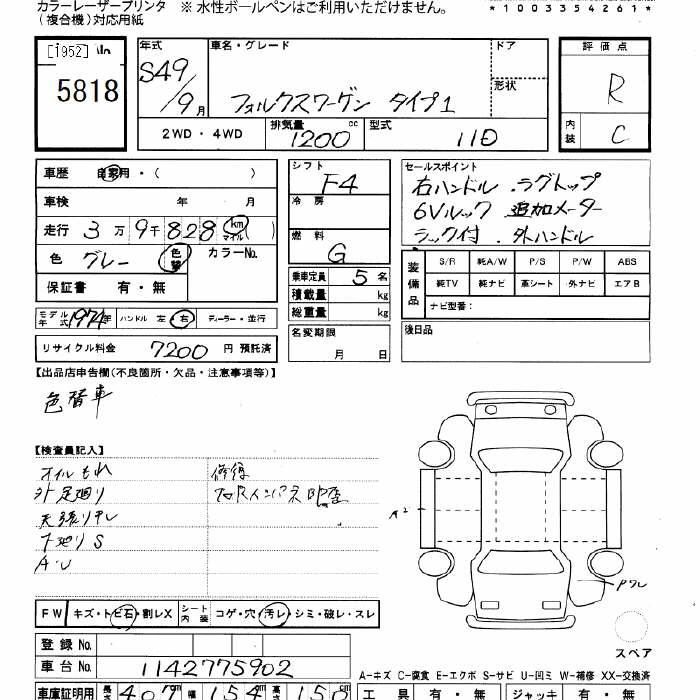 カラーレーザープリンタ ※ 水性ボールペンはご利用いただけません。
(複合機)対応用紙
*1003354261*
[1952]
5818
年式 S49/9月
車名・グレード フォルクスワーゲン タイプ1
ドア
形状
評価点 R
内装 C
2WD・4WD
排気量 1200 cc
型式 110
車歴 自家用・( )
車検 年 月
走行 3万9千828 km マイル ( )
色 グレー 色替 カラーNo.
保証書 有・無
モデル年式 1974年 ハンドル 左・右 ディーラー・並行
リサイクル料金 7200 円 預託済
シフト F4
冷房
燃料 G
乗車定員 5 名
積載量 kg
総重量 kg
名変期限 月 日
セールスポイント
右ハンドル .ラグトップ
6Vルック 追加メーター
ラック付 .外ハンドル
装備品
S/R 純A/W P/S P/W ABS
純TV 純ナビ 革シート 外ナビ エアB
ナビ型番:
後日品
【出品店申告欄(不良箇所・欠品・注意事項等)】
色替車
【検査員記入】
オイルもれ
外 足廻り
天張り
下廻りS
A.U
修復
A2
FW キズ・トビ石・割レX シート内装 コゲ・穴・汚レ・シミ・破レ・スレ
スペア
登録No.
車台No. 1142775902
A-キズ C-腐食 E-エクボ S-サビ U-凹ミ W-補修 XX-交換済
車庫証明用 長さ 407 幅 154 高さ 150
工具 有・無 ジャッキ 有・無